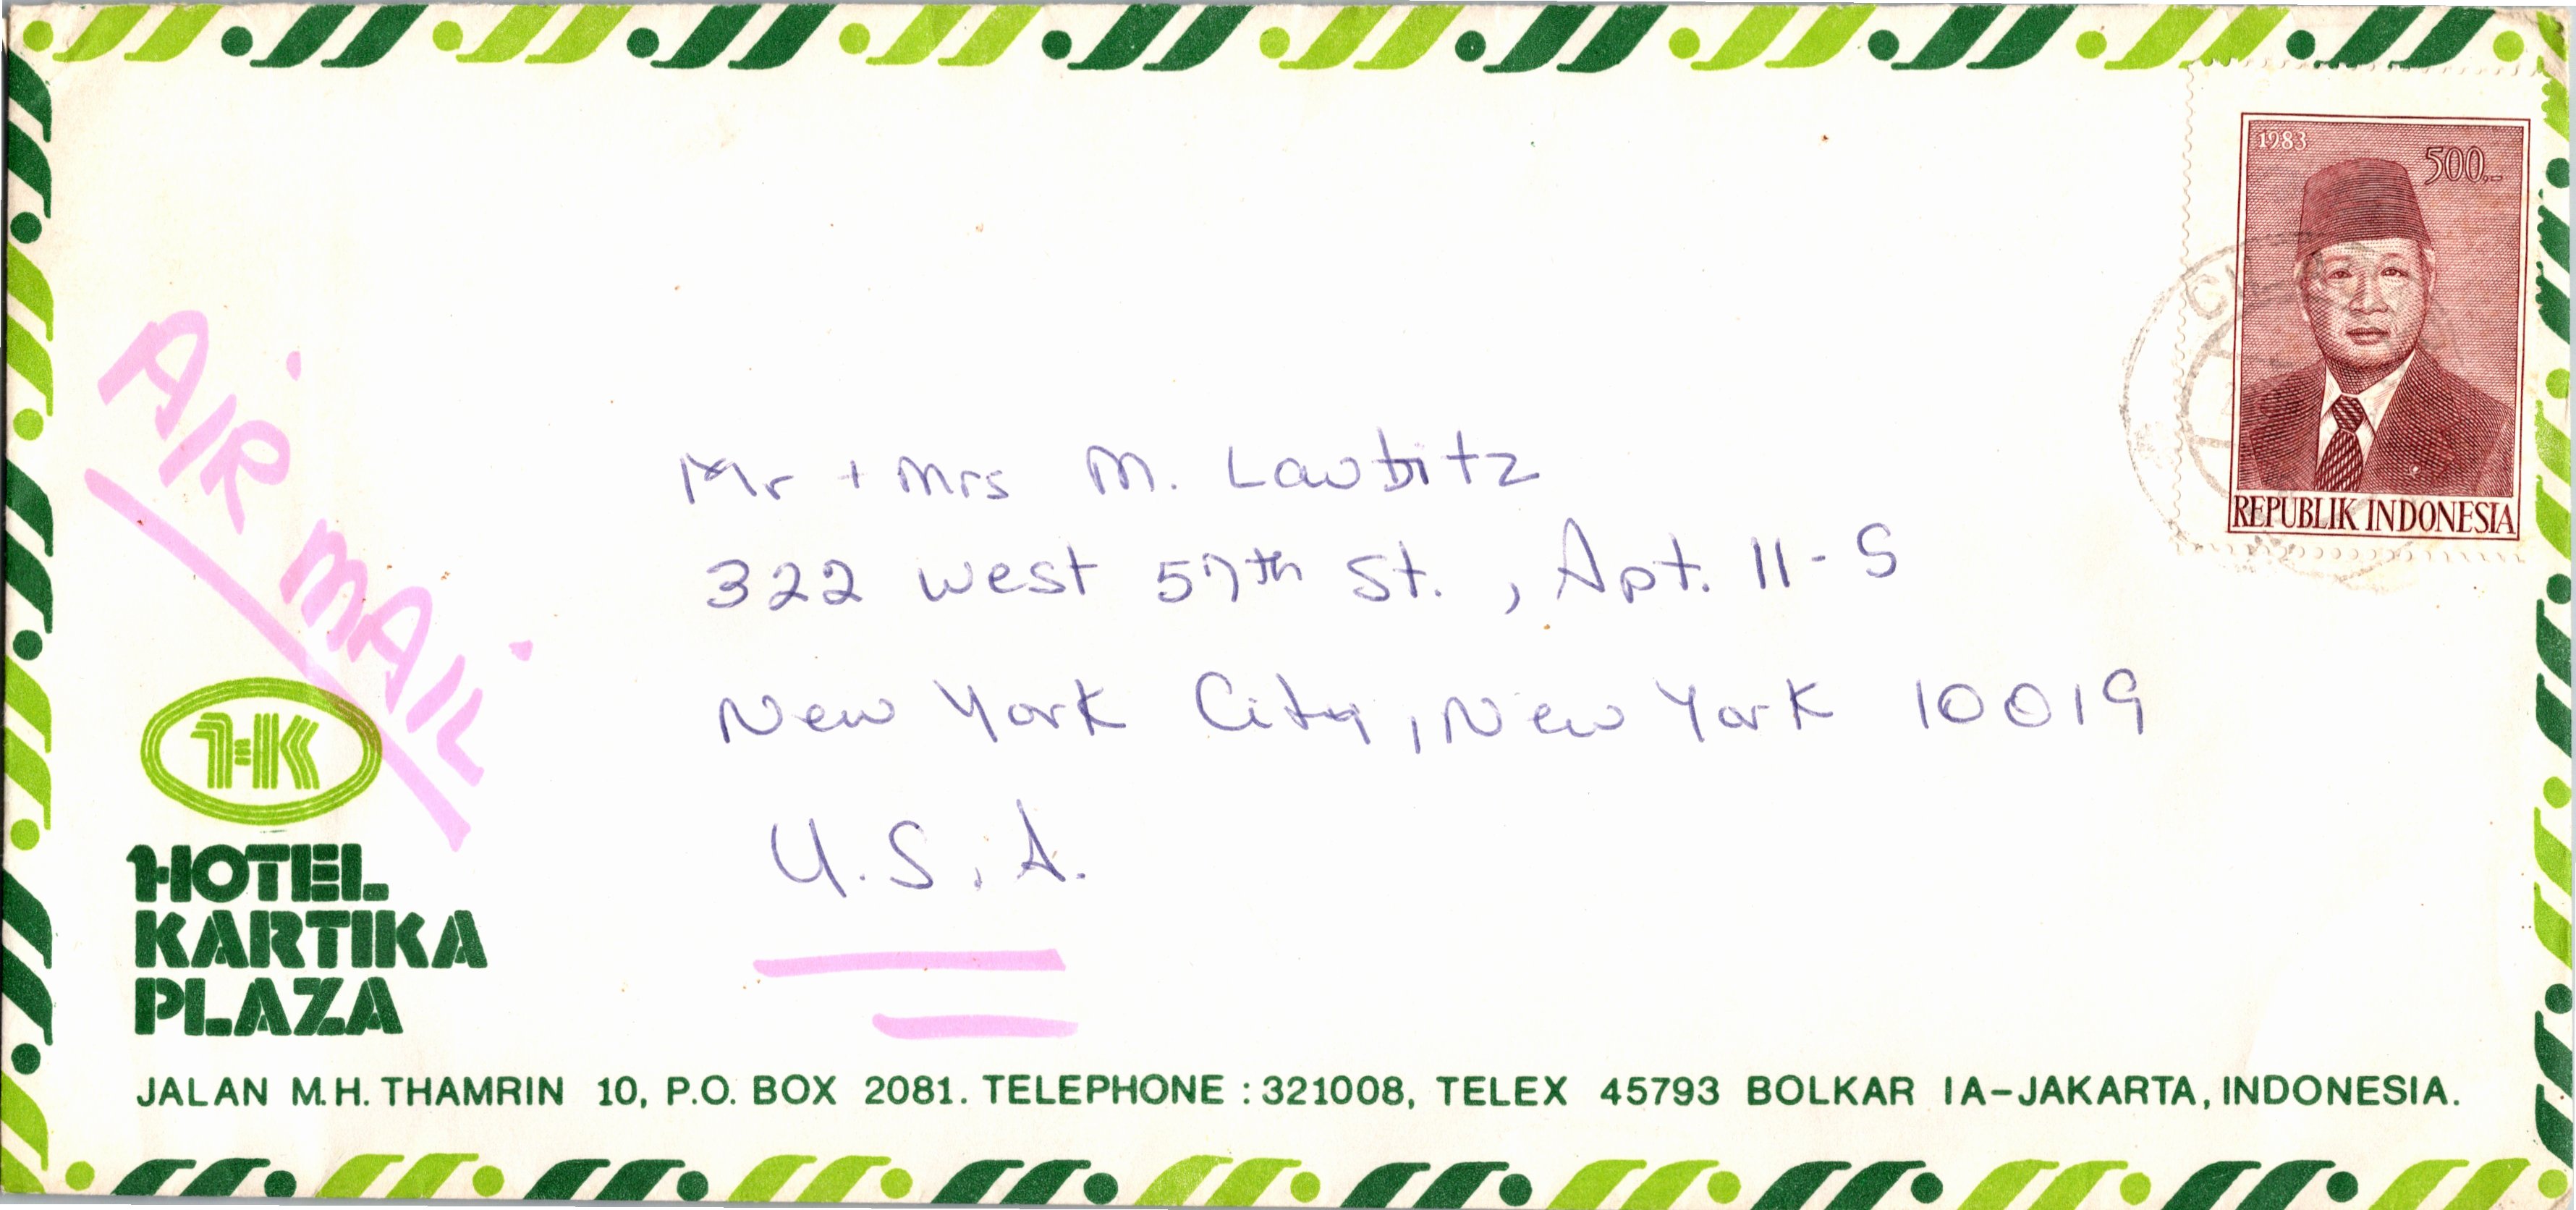 1983
500,-
REPUBLIK INDONESIA
AIR MAIL
Mr + Mrs M. Laubitz
322 West 57th St., Apt. 11-S
New York City, New York 10019
U.S.A.
HK
HOTEL
KARTIKA
PLAZA
JALAN M.H. THAMRIN 10, P.O. BOX 2081. TELEPHONE : 321008, TELEX 45793 BOLKAR IA-JAKARTA, INDONESIA.